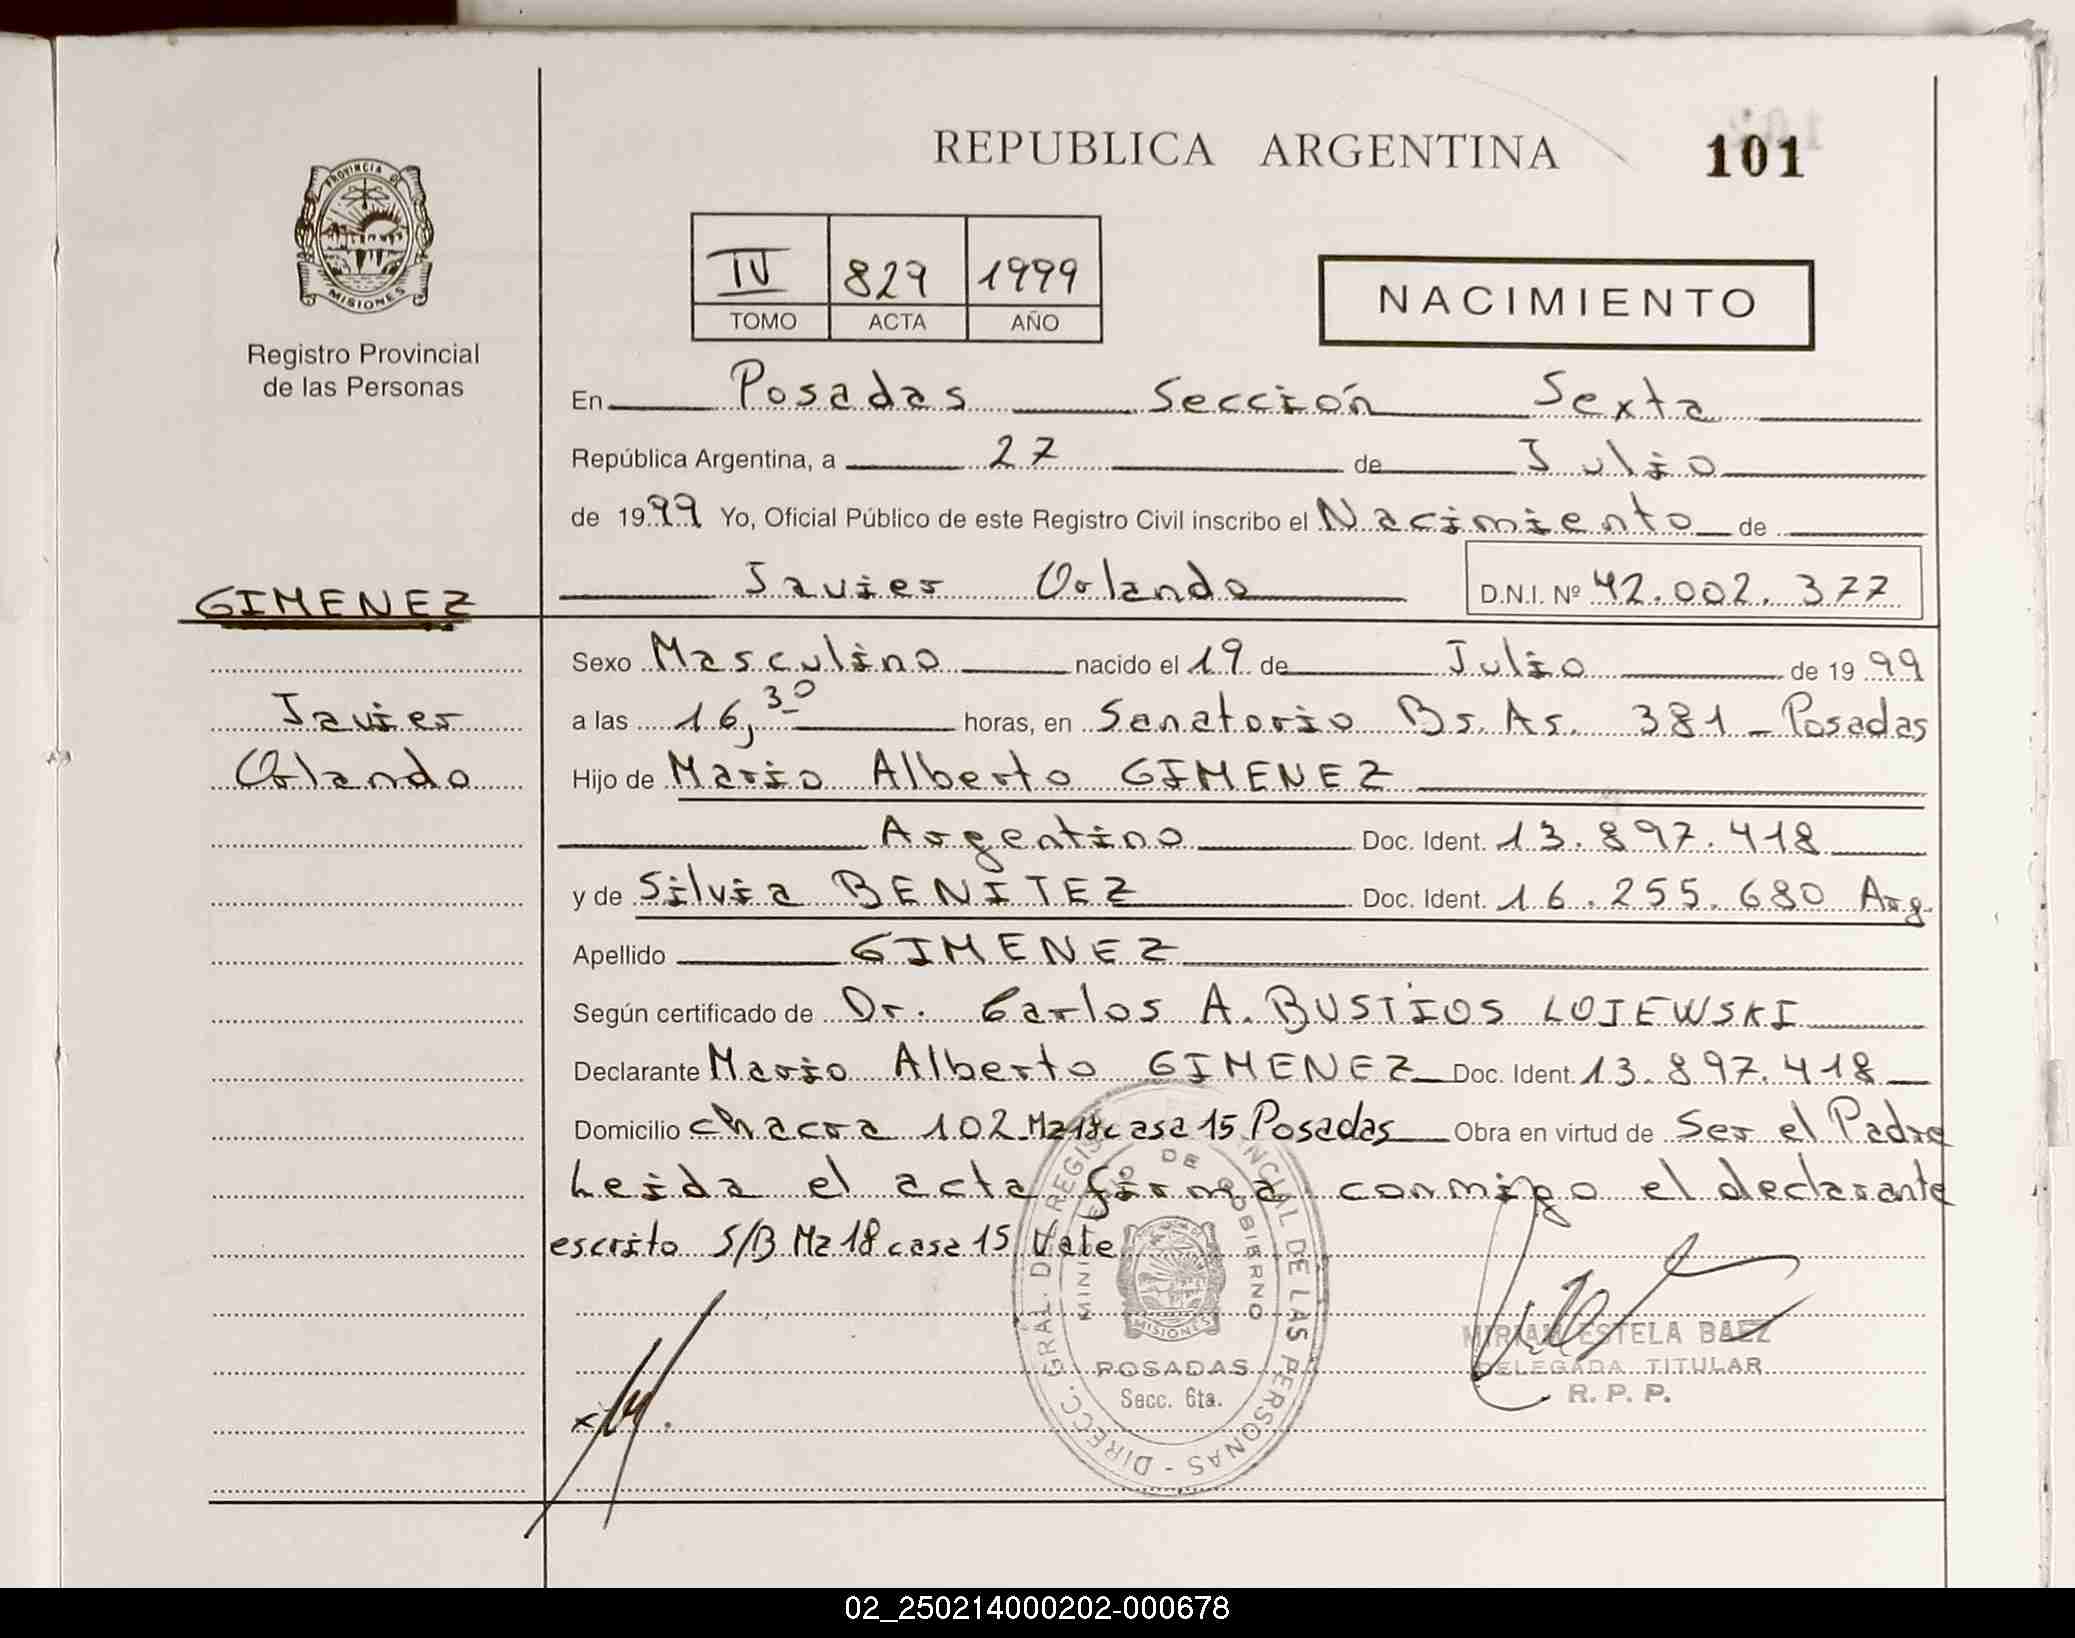 REPUBLICA ARGENTINA 101
PROVINCIA DE MISIONES
Registro Provincial
de las Personas
IV 829 1999
TOMO ACTA AÑO
NACIMIENTO
En Posadas Sección Sexta
República Argentina, a 27 de Julio
de 1999 Yo, Oficial Público de este Registro Civil inscribo el Nacimiento de
Javier Orlando D.N.I. Nº 42.002.377
GIMENEZ
Javier
Orlando
Sexo Masculino nacido el 19 de Julio de 1999
a las 16,30 horas, en Sanatorio Bs. As. 381 - Posadas
Hijo de Mario Alberto GIMENEZ
Argentino Doc. Ident. 13.897.418
y de Silvia BENITEZ Doc. Ident. 16.255.680 Arg.
Apellido GIMENEZ
Según certificado de Dr. Carlos A. BUSTIOS LOJEWSKI
Declarante Mario Alberto GIMENEZ Doc. Ident. 13.897.418
Domicilio chacra 102 Mz 18 casa 15 Posadas Obra en virtud de Ser el Padre
Leida el acta firma conmigo el declarante
escrito S/B Mz 18 casa 15 Vale
DIRECC. GRAL. DE REGISTRO PROVINCIAL DE LAS PERSONAS
MINISTERIO DE GOBIERNO
MISIONES
POSADAS
Secc. 6ta.
MIRIAM ESTELA BAEZ
DELEGADA TITULAR
R. P. P.
02_250214000202-000678